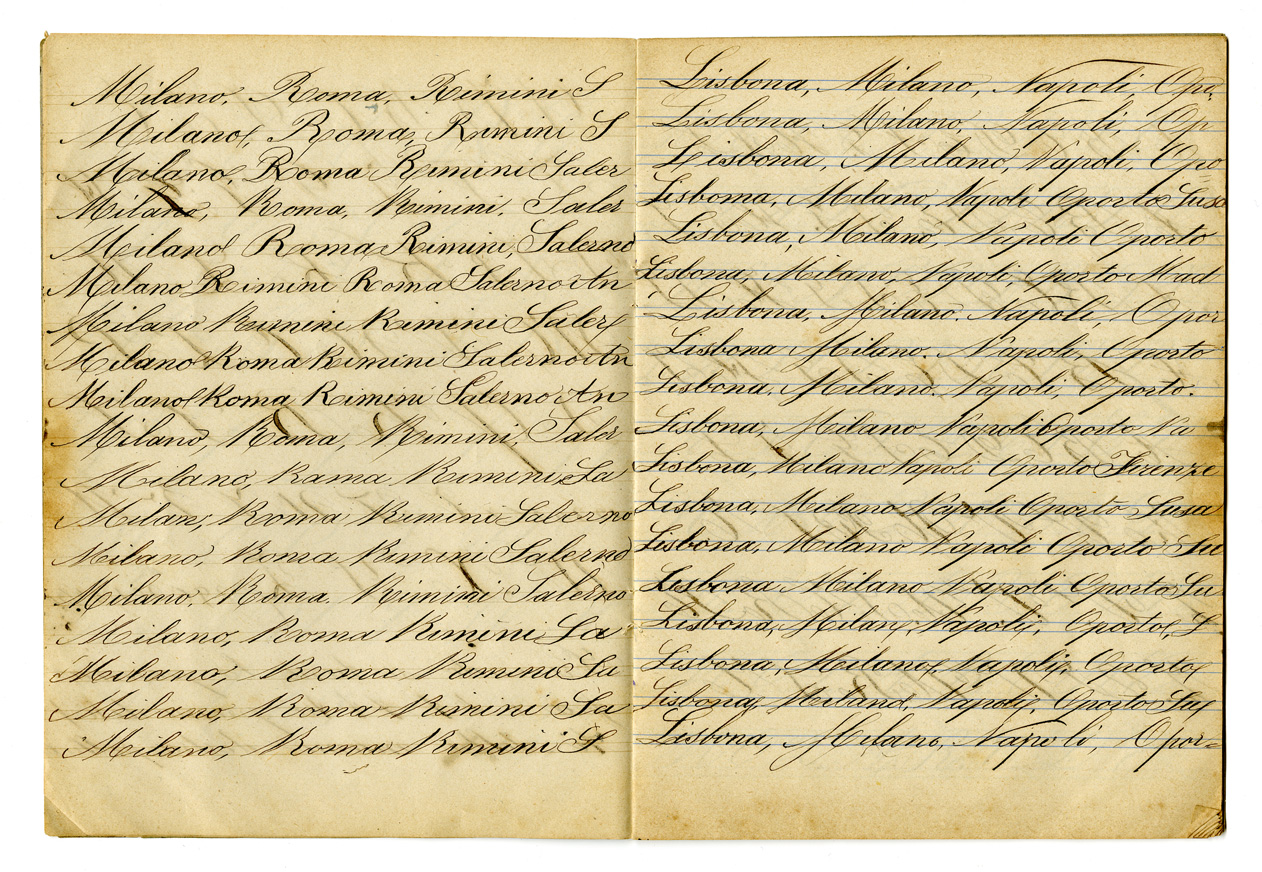 Milano, Roma, Rimini S
Milano, Roma, Rimini S
Milano, Roma Rimini Saler
Milano, Roma, Rimini, Saler
Milano Roma Rimini, Salerno
Milano Rimini Roma Salerno An
Milano Rimini Rimini Saler
Milano Roma Rimini Salerno An
Milano Roma Rimini Salerno An
Milano, Roma, Rimini, Saler
Milano, Rama Rimini, Sa
Milan, Roma Rimini Salerno
Milano, Roma Rimini Salerno
Milano, Roma. Rimini Salerno
Milano, Roma Rimini Sa
Milano, Roma Rimini Sa
Milano, Roma Rimini Sa
Milano, Roma Rimini S
Lisbona, Milano, Napoli, Opo
Lisbona, Milano, Napoli, Op
Lisbona, Milano, Napoli, Opo
Lisboma, Milano, Napoli Oporto Susa
Lisbona, Milano, Napoli Oporto
Lisbona, Milano, Napoli, Oporto Mad
Lisbona, Milano. Napoli, Opor
Lisbona Milano. Napoli, Oporto
Lisbona, Milano. Napoli, Oporto.
Lisbona, Milano Napoli Oporto Va
Lisbona, Milano Napoli Oporto Firenze
Lisbona, Milano Napoli Oporto Susa
Lisbona, Milano Napoli Oporto Su
Lisbona Milano Napoli Oporto Su
Lisbona, Milano, Napoli, Oporto, S
Lisbona, Milano, Napoli, Oporto,
Lisbona, Milano, Napoli, Oporto Su
Lisbona, Milano, Napoli, Opor=